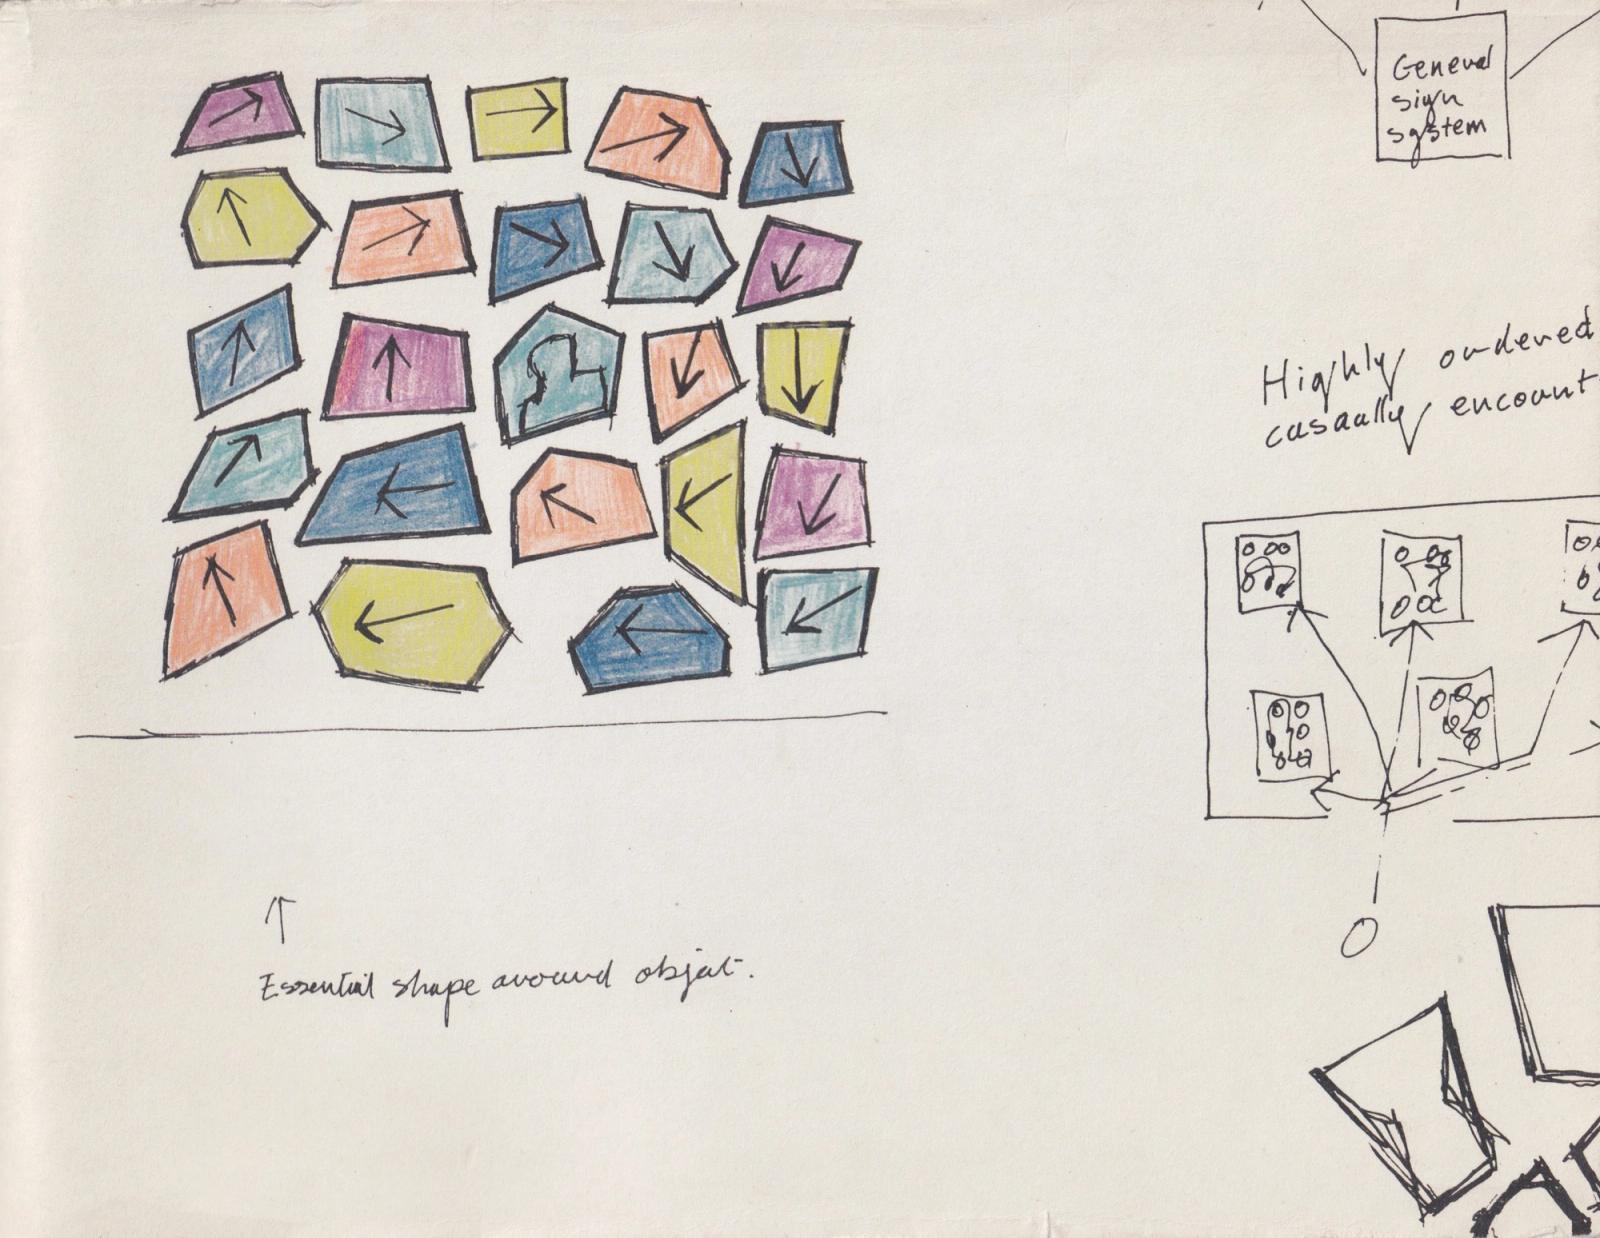 General
sign
system
Highly ordered
casually encount
Essential shape around object.